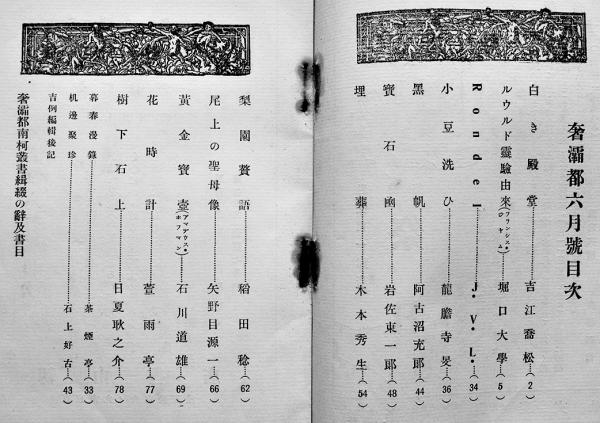 奢灞都六月號目次
白き殿堂……吉江喬松……( 2 )
ルウルド靈驗由來(フランシス・ジャム)……堀口大學……( 5 )
Rondel……J. V. L.……( 34 )
小豆洗ひ……龍膽寺旻……( 36 )
黑帆……阿古沼充郞……( 44 )
寶石凾……岩佐東一郞……( 48 )
埋葬……木本秀生……( 54 )
梨園贅語……稲田稔……( 62 )
尾上の聖母像……矢野目源一……( 66 )
黃金寶壷(アマデウス・ホフマン)……石川道雄……( 69 )
花時計……萱雨亭……( 77 )
樹下石上……日夏耿之介……( 78 )
暮春漫錄……茶煙亭……( 33 )
机邊聚珍……石上好古……( 43 )
吉例編輯後記
奢灞都南柯叢書緝綴の辭及書目